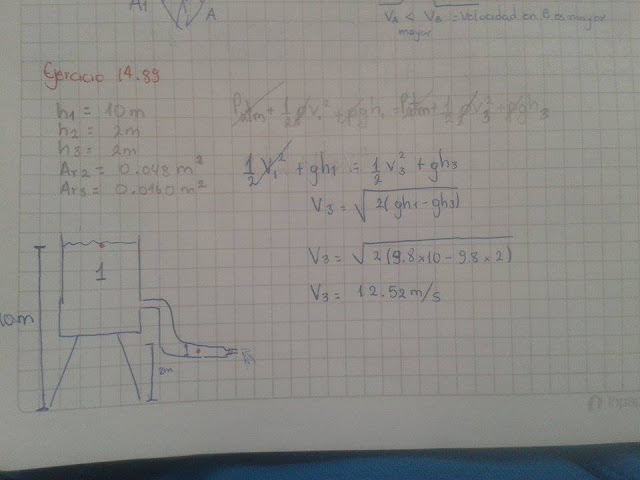 A1
A
VA < VB = Velocidad en B es mayor
mayor
Ejercicio 14.89
h1 = 10m
h2 = 2m
h3 = 2m
Ar2 = 0.048 m²
Ar3 = 0.0160 m²
Patm + 1/2 ρ v1² + ρgh1 = Patm + 1/2 ρ v3² + ρgh3
1/2 V1² + gh1 = 1/2 V3² + gh3
V3 = √2(gh1 - gh3)
V3 = √2(9.8x10 - 9.8x2)
V3 = 12.52 m/s
1
10m
2m